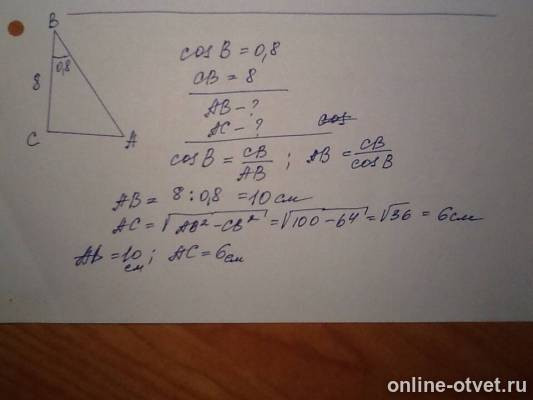 B
0,8
8
C
A
cos B = 0,8
CB = 8
AB - ?
AC - ?
cos
cos B = CB/AB ; AB = CB/cos B
AB = 8 : 0,8 = 10 см
AC = √AB² - CB² = √100 - 64 = √36 = 6 см
AB = 10 см ; AC = 6 см
online-otvet.ru